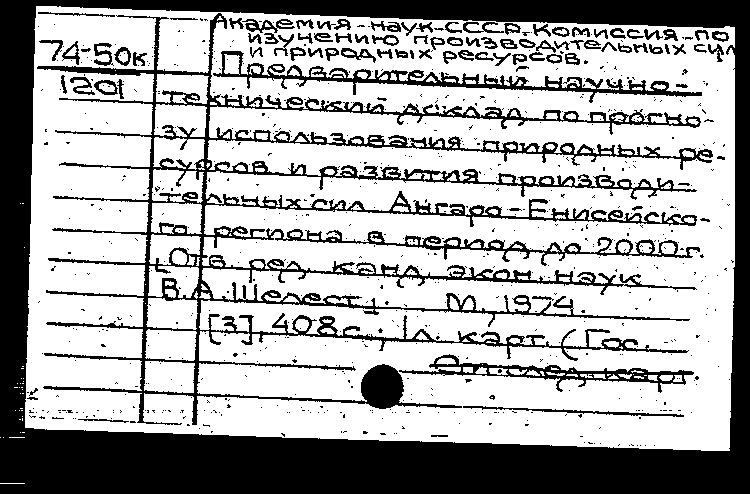 Академия наук СССР. Комиссия по
изучению производительных сил
и природных ресурсов.
74-50к
1201
Предварительный научно-
технический доклад по прогно-
зу использования природных ре-
сурсов и развития производи-
тельных сил Ангаро-Енисейско-
го региона в период до 2000 г.
[Отв. ред. канд. экон. наук
В.А. Шелест]. М., 1974.
[3], 408 с.; 1 л. карт. (Гос.
См. след. карт.